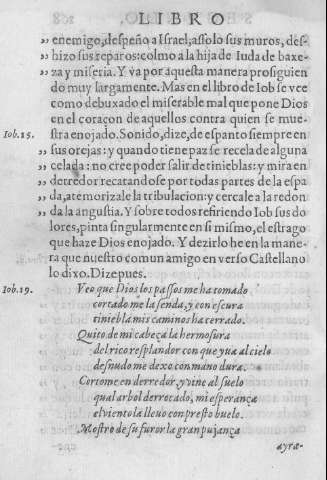 LIBRO
„ enemigo, despeño a Israel, assolo sus muros, des-
„ hizo sus reparos: colmo a la hija de Iuda de baxe-
„ za y miseria. Y va por aquesta manera prosiguien
do muy largamente. Mas en el libro de Iob se vee
como debuxado el miserable mal que pone Dios
en el coraçon de aquellos contra quien se mue-
Iob. 15. stra enojado. Sonido, dize, de espanto siempre en
„ sus orejas: y quando tiene paz se recela de alguna
„ celada: no cree poder salir de tinieblas: y mira en
„ derredor recatandose por todas partes de la espa
„ da, atemorizale la tribulacion: y cercale a la redon
da la angustia. Y sobre todos refiriendo Iob sus do
lores, pinta singularmente en si mismo, el estrago
que haze Dios enojado. Y dezirlo he en la mane-
ra que nuestro comun amigo en verso Castellano
lo dixo. Dize pues.
Iob. 19. Veo que Dios los passos me ha tomado
cortado me la senda, y con escura
tiniebla mis caminos ha cerrado.
Quito de mi cabeça la hermosura
del rico resplandor con que yua al cielo
desnudo me dexo con mano dura.
Cortome en derredor, y vine al suelo
qual arbol derrocado, mi esperança
el viento la lleuo con presto buelo.
Mostro de su furor la gran pujança
ayra-